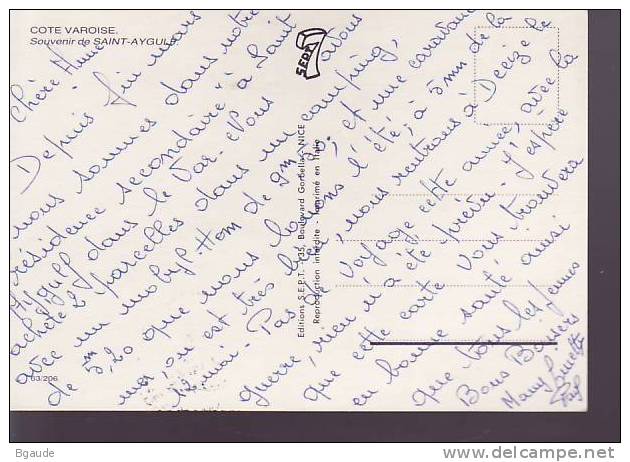 COTE VAROISE.
Souvenir de SAINT-AYGULF.
Chère
Depuis fin mars
nous sommes dans notre
résidence secondaire à Saint
Aygulf dans le Var. Nous avons
acheté 2 parcelles dans un camping,
avec un mobyl-Hom de 9m
de 3,20 que nous louons l'été, et une caravane
mer, on est très bien, nous rentrons à Decize le
12 mai. Pas de voyage cette année, avec la
guerre, rien n'a été prévu. J'espère
que cette carte vous trouvera
en bonne santé ainsi
que tous les jeunes
Bons Baisers
Many
à 5 mn de la
SEPT
Editions S.E.P.T. - 35, Boulevard Gorbella - NICE
Reproduction interdite - Imprimé en Italie
83/206
Bgaude
delcampe.net